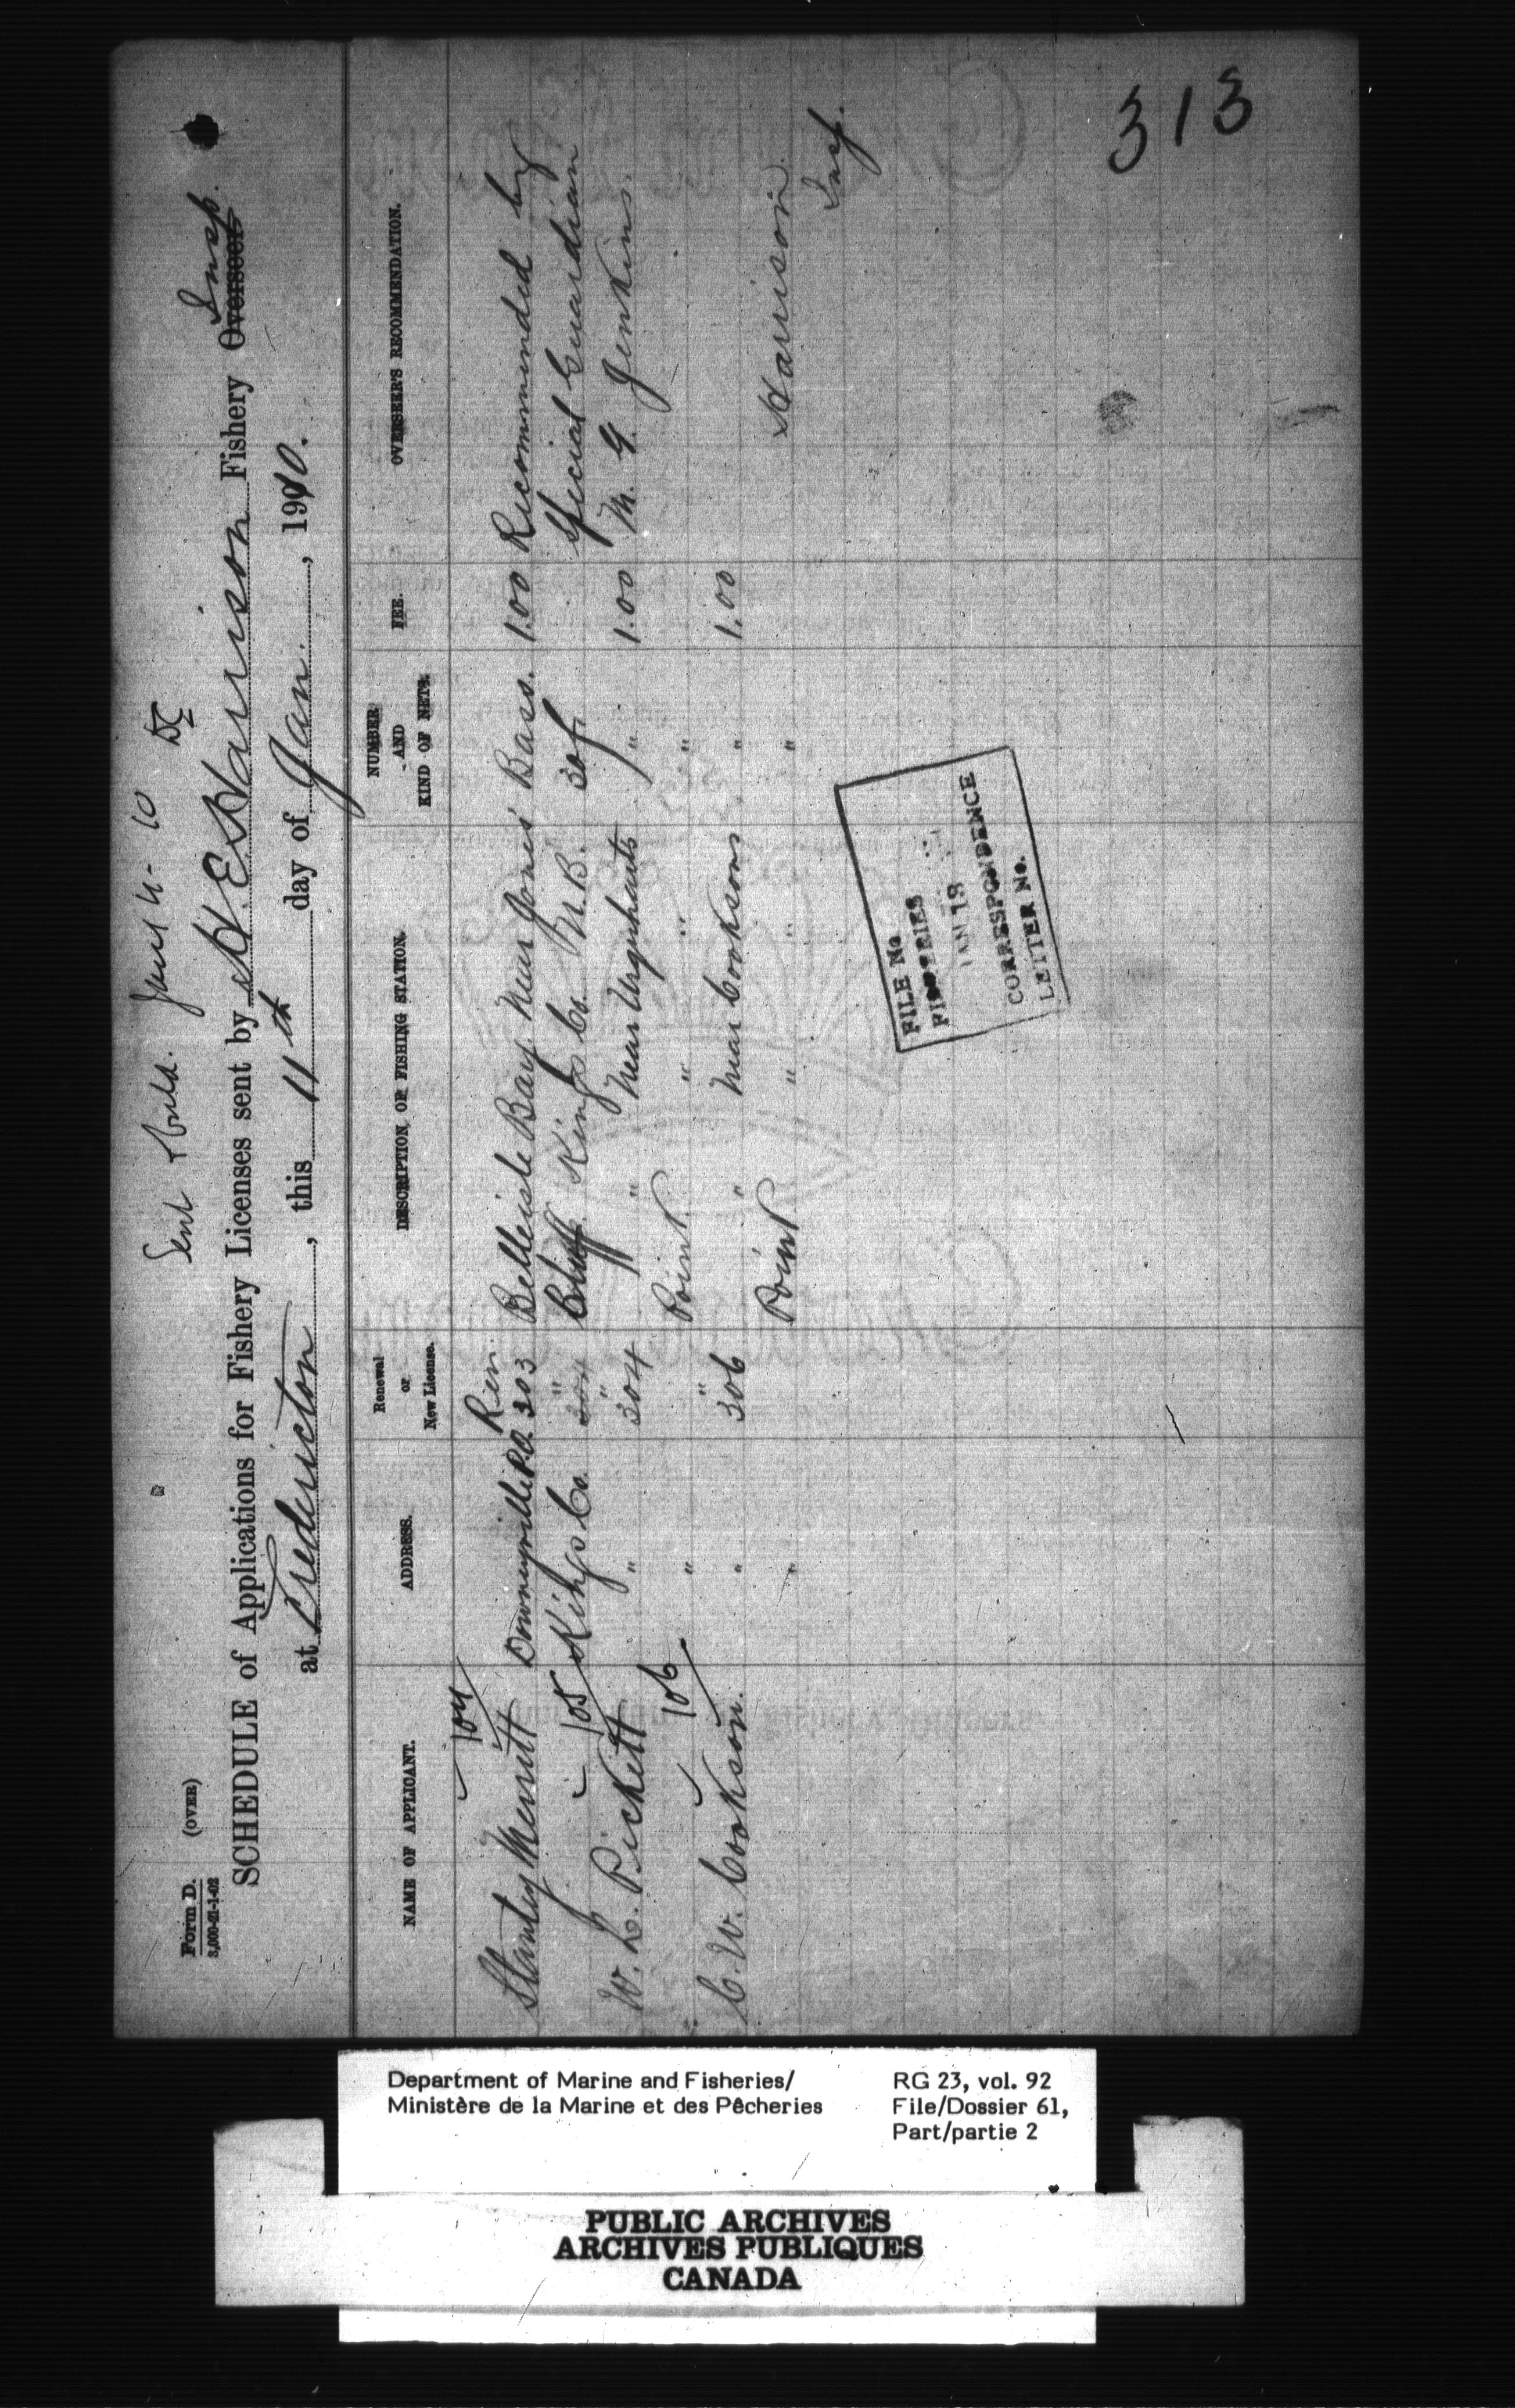 Form D. (OVER)
3,000-21-1-02
Sent Jany 14-10
SCHEDULE of Applications for Fishery Licenses sent by H. E. Harrison Fishery Overseer Insp.
at Fredericton, this 11th day of Jan., 1910.
NAME OF APPLICANT. ADDRESS. Renewal or New License. DESCRIPTION, OR FISHING STATION. NUMBER AND KIND OF NETS. FEE. OVERSEER'S RECOMMENDATION.
104 Ren.
Stanley Merritt Downeyville P.O. 303 Belleisle Bay. Near Jones' Bass. 1.00 Recommended by
105 Kings Co. " 304 Bluff Kings Co. N.B. 30 f Special Guardian
W. L. Pickett " " 304 " " Near Urquharts " 1.00 M. G. Jenkins.
106 " Point " " "
C. W. Cookson. " " 306 " Near Cooksons " 1.00
" Point " " " Harrison.
Insp.
FILE No
FISHERIES
JAN 18
CORRESPONDENCE
LETTER No.
313
Department of Marine and Fisheries/
Ministère de la Marine et des Pêcheries
RG 23, vol. 92
File/Dossier 61,
Part/partie 2
PUBLIC ARCHIVES
ARCHIVES PUBLIQUES
CANADA